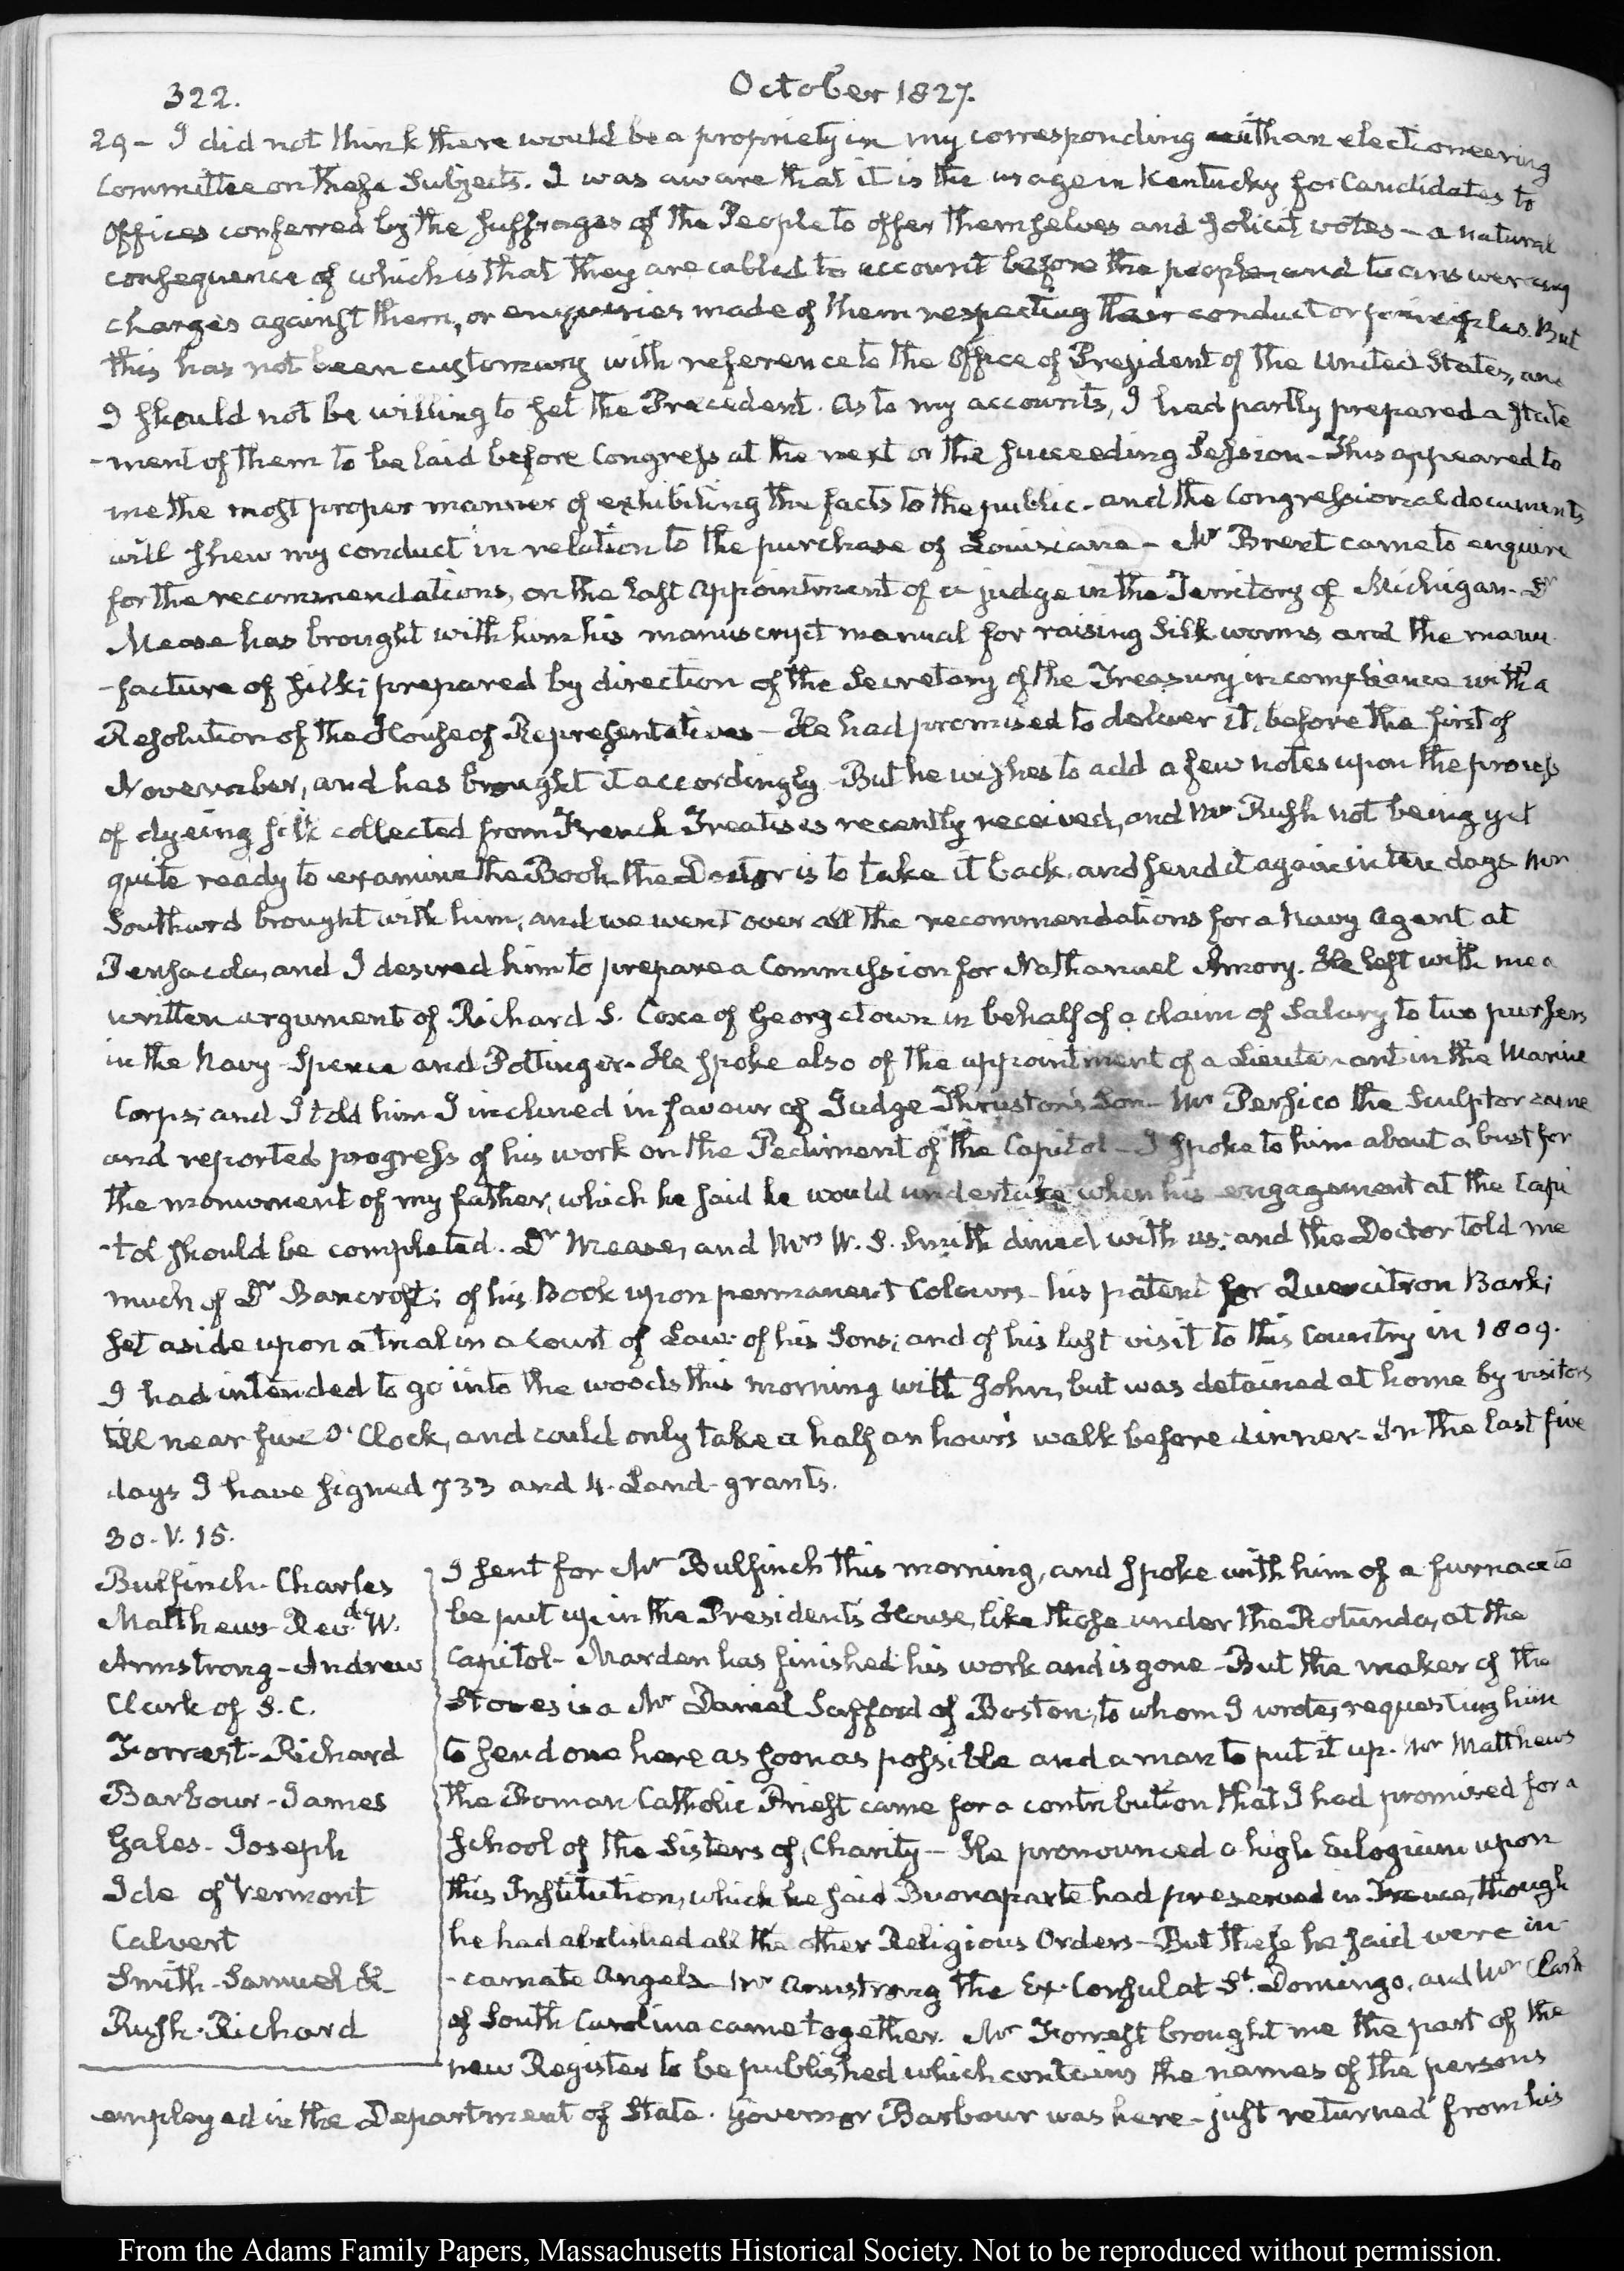 322.
October 1827.
29 - I did not think there would be a propriety in my corresponding with an electioneering
Committee on these Subjects. I was aware that it is the usage in Kentucky for Candidates to
Offices conferred by the suffrages of the People to offer themselves and solicit votes - a natural
consequence of which is that they are called to account before the people, and to answer any
charges against them, or enquiries made of them respecting their conduct or principles. But
this has not been customary with reference to the Office of President of the United States, and
I should not be willing to set the Precedent. As to my accounts, I had partly prepared a state
-ment of them to be laid before Congress at the next or the succeeding Session - This appeared to
me the most proper manner of exhibiting the facts to the public - and the Congressional documents
will shew my conduct in relation to the purchase of Louisiana - Mr Brent came to enquire
for the recommendations, on the last appointment of a judge in the Territory of Michigan - Dr
Mease has brought with him his manuscript manual for raising Silk worms, and the manu
-facture of silk; prepared by direction of the Secretary of the Treasury in compliance with a
Resolution of the House of Representatives - He had promised to deliver it, before the first of
November, and has brought it accordingly - But he wishes to add a few notes upon the process
of dyeing silk collected from French Treatises recently received, and Mr Rush not being yet
quite ready to examine the Book the Doctor is to take it back, and send it again in ten days Mr
Southard brought with him, and we went over all the recommendations for a Navy Agent at
Pensacola, and I desired him to prepare a Commission for Nathaniel Amory. He left with me a
written argument of Richard S. Coxe of Georgetown in behalf of a claim of Salary to two pursers
in the Navy - Spence and Pottinger - He spoke also of the appointment of a Lieutenant in the Marine
Corps; and I told him I inclined in favour of Judge Thruston's Son - Mr Persico the Sculptor came
and reported progress of his work on the Pediment of the Capitol - I spoke to him about a bust for
the monument of my father, which he said he would undertake when his engagement at the Capi
-tol should be completed. Dr Mease, and Mrs W. S. Smith dined with us; and the Doctor told me
much of Dr Bancroft; of his Book upon permanent Colours - his patent for Quercitron Bark;
set aside upon a trial in a Court of Law: of his Sons; and of his last visit to this Country in 1809.
I had intended to go into the woods this morning with John, but was detained at home by visitors
till near five O'Clock, and could only take a half an hour's walk before dinner - In the last five
days I have signed 733 and 4. Land-grants.
30. V. 15.
Bulfinch - Charles
Matthews - Revd. W.
Armstrong - Andrew
Clark of S. C.
Forrest - Richard
Barbour - James
Gales - Joseph
Ide of Vermont
Calvert
Smith - Samuel H.
Rush - Richard
I sent for Mr Bulfinch this morning, and spoke with him of a furnace to
be put up in the President's House, like those under the Rotunda, at the
Capitol - Marden has finished his work and is gone - But the maker of the
Stoves is a Mr Daniel Safford of Boston, to whom I wrote, requesting him
to send one here as soon as possible and a man to put it up - Mr Matthews
the Roman Catholic Priest came for a contribution that I had promised for a
School of the Sisters of Charity - He pronounced a high Eulogium upon
this Institution, which he said Buonaparte had preserved in France, though
he had abolished all the other Religious Orders - But these he said were in
-carnate Angels - Mr Armstrong the Ex-Consul at St. Domingo, and Mr Clark
of South Carolina came together. Mr Forrest brought me the part of the
new Register to be published which contains the names of the persons
employed in the Department of State. Governor Barbour was here - just returned from his
From the Adams Family Papers, Massachusetts Historical Society. Not to be reproduced without permission.